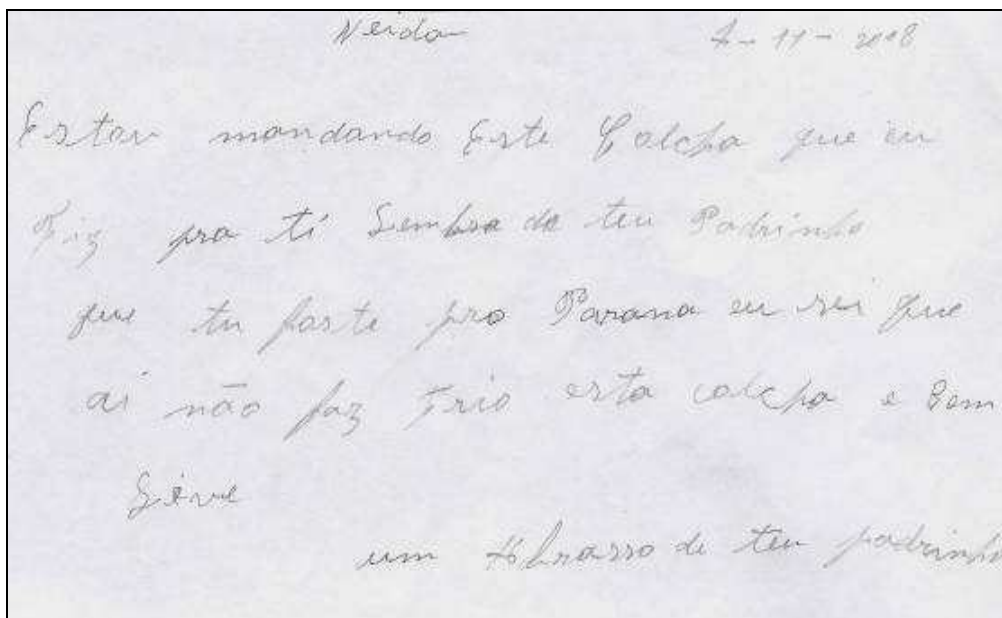 Neida 4-11-2008
Estou mandando Este Colcha que eu
Fiz pra ti Lembra do teu Padrinho
que tu foste pro Parana eu sei que
ai não faz Frio esta colcha e Bem
Leve
um Abrasso de teu padrinho